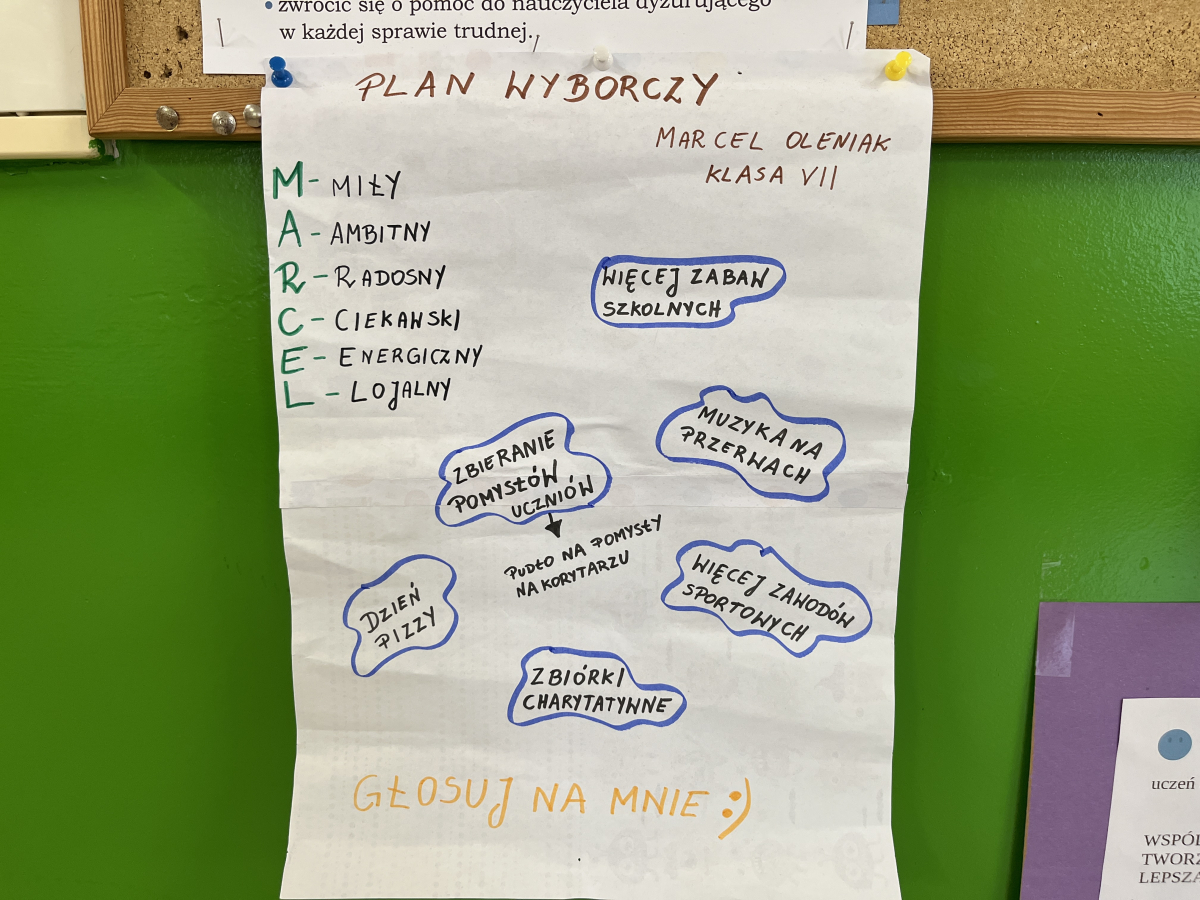 • zwrócić się o pomoc do nauczyciela dyżurującego
w każdej sprawie trudnej.
PLAN WYBORCZY
MARCEL OLENIAK
KLASA VII
M - MIŁY
A - AMBITNY
R - RADOSNY
C - CIEKAWSKI
E - ENERGICZNY
L - LOJALNY
WIĘCEJ ZABAW
SZKOLNYCH
MUZYKA NA
PRZERWACH
ZBIERANIE
POMYSŁÓW
UCZNIÓW
PUDŁO NA POMYSŁY
NA KORYTARZU
WIĘCEJ ZAWODÓW
SPORTOWYCH
DZIEŃ
PIZZY
ZBIÓRKI
CHARYTATYWNE
GŁOSUJ NA MNIE :)
uczeń
WSPÓL
TWORZ
LEPSZA